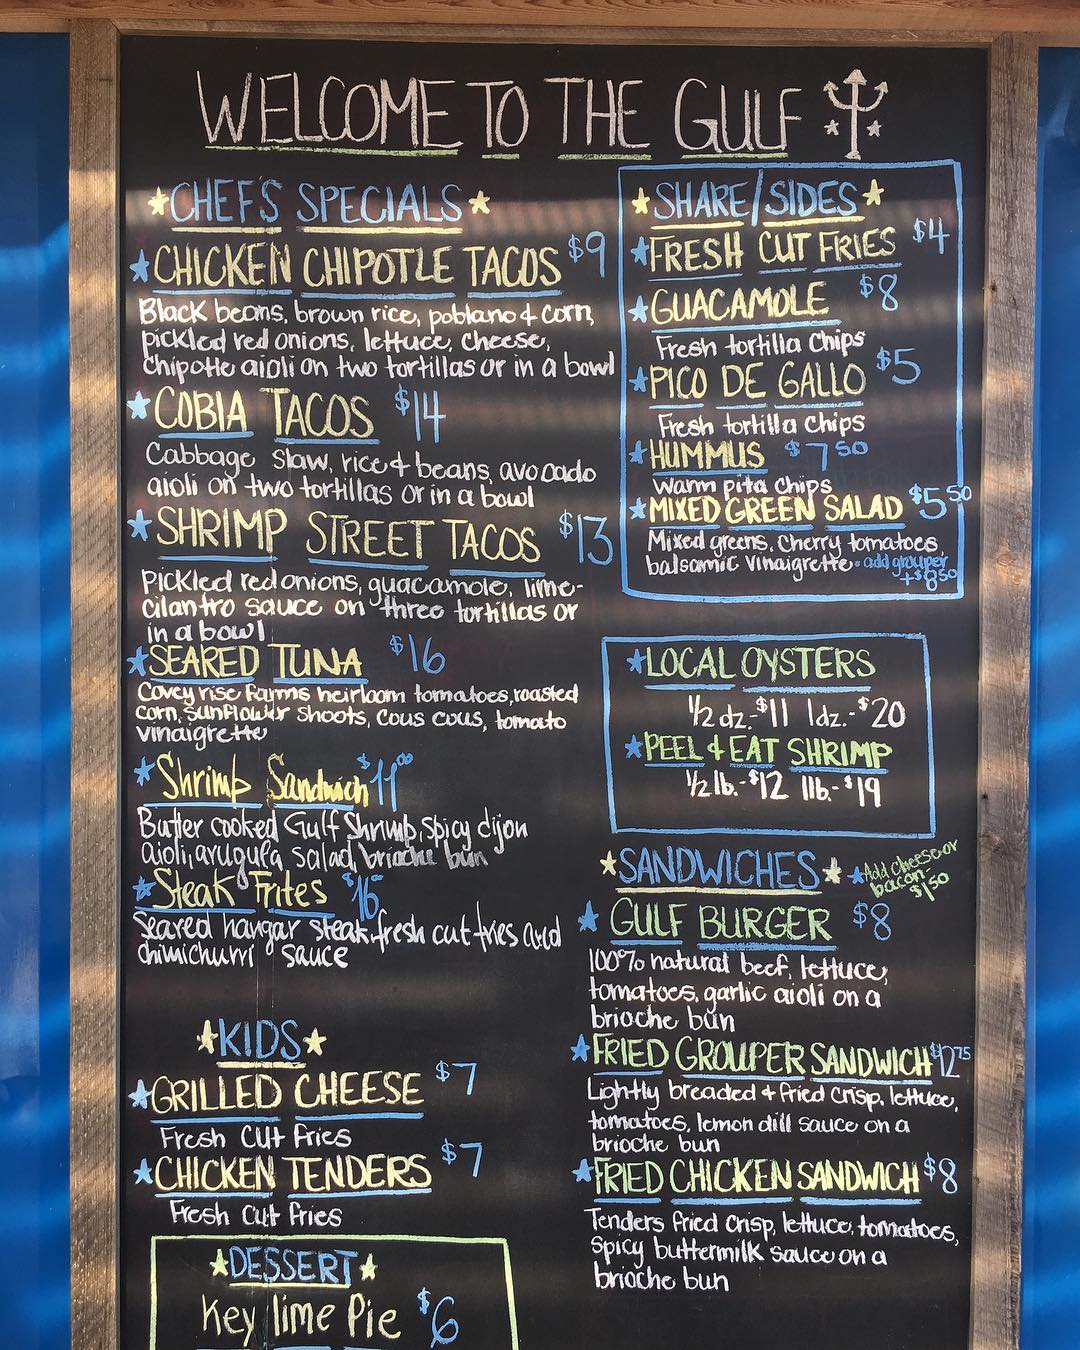 WELCOME TO THE GULF
CHEF'S SPECIALS
CHICKEN CHIPOTLE TACOS $9
Black beans, brown rice, poblano & corn,
pickled red onions, lettuce, cheese,
Chipotle aioli on two tortillas or in a bowl
COBIA TACOS $14
Cabbage Slaw, rice & beans, avocado
aioli on two tortillas or in a bowl
SHRIMP STREET TACOS $13
Pickled red onions, guacamole, lime-
cilantro sauce on three tortillas or
in a bowl
SEARED TUNA $16
Covey rise farms heirloom tomatoes, roasted
corn, sunflower shoots, cous cous, tomato
vinaigrette
Shrimp Sandwich $11.00
Butter cooked Gulf Shrimp, Spicy dijon
aioli, arugula salad, brioche bun
Steak Frites $16
Seared hangar steak, fresh cut fries and
chimichurri sauce
KIDS
GRILLED CHEESE $7
Fresh Cut Fries
CHICKEN TENDERS $7
Fresh Cut Fries
DESSERT
Key lime Pie $6
SHARE/SIDES
FRESH CUT FRIES $4
GUACAMOLE $8
Fresh tortilla Chips
PICO DE GALLO $5
Fresh tortilla Chips
HUMMUS $7 50
Warm pita Chips
MIXED GREEN SALAD $5 50
Mixed greens, Cherry tomatoes
balsamic vinaigrette · add grouper
+$8 50
LOCAL OYSTERS
1/2 dz.-$11 1dz.-$20
PEEL & EAT SHRIMP
1/2 lb.-$12 1lb.-$19
SANDWICHES
Add Cheese or
bacon-
$1 50
GULF BURGER $8
100% natural beef, lettuce,
tomatoes, garlic aioli on a
brioche bun
FRIED GROUPER SANDWICH $12 75
Lightly breaded & fried crisp, lettuce,
tomatoes, lemon dill sauce on a
brioche bun
FRIED CHICKEN SANDWICH $8
Tenders fried crisp, lettuce, tomatoes,
Spicy buttermilk sauce on a
brioche bun